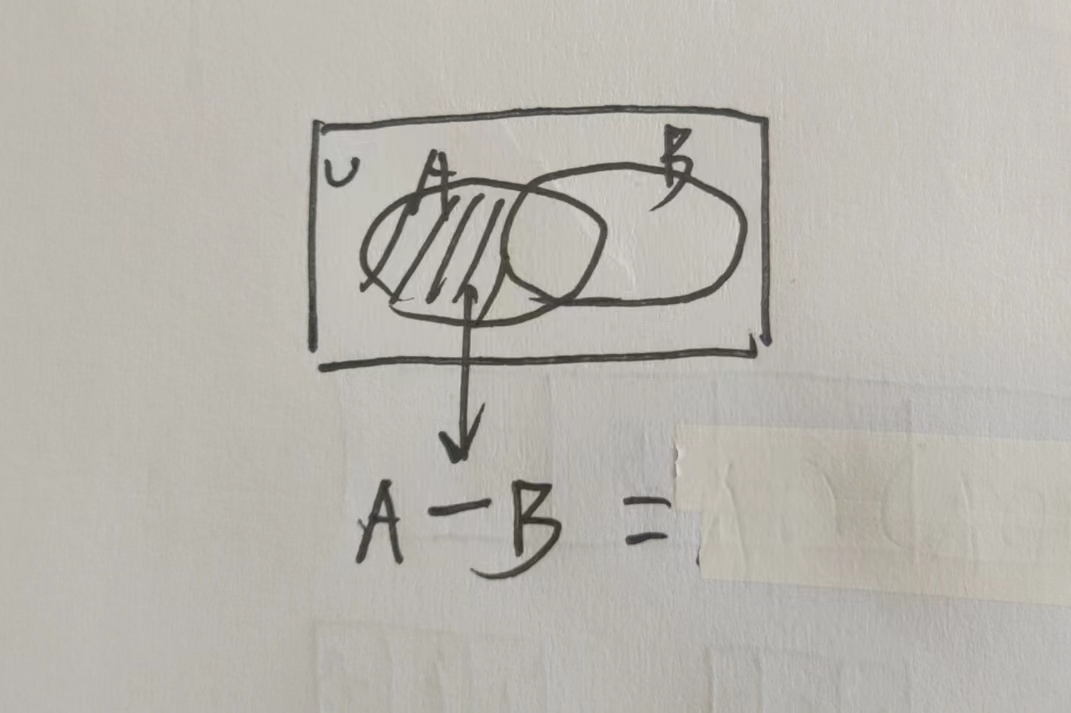 U A B
A - B =